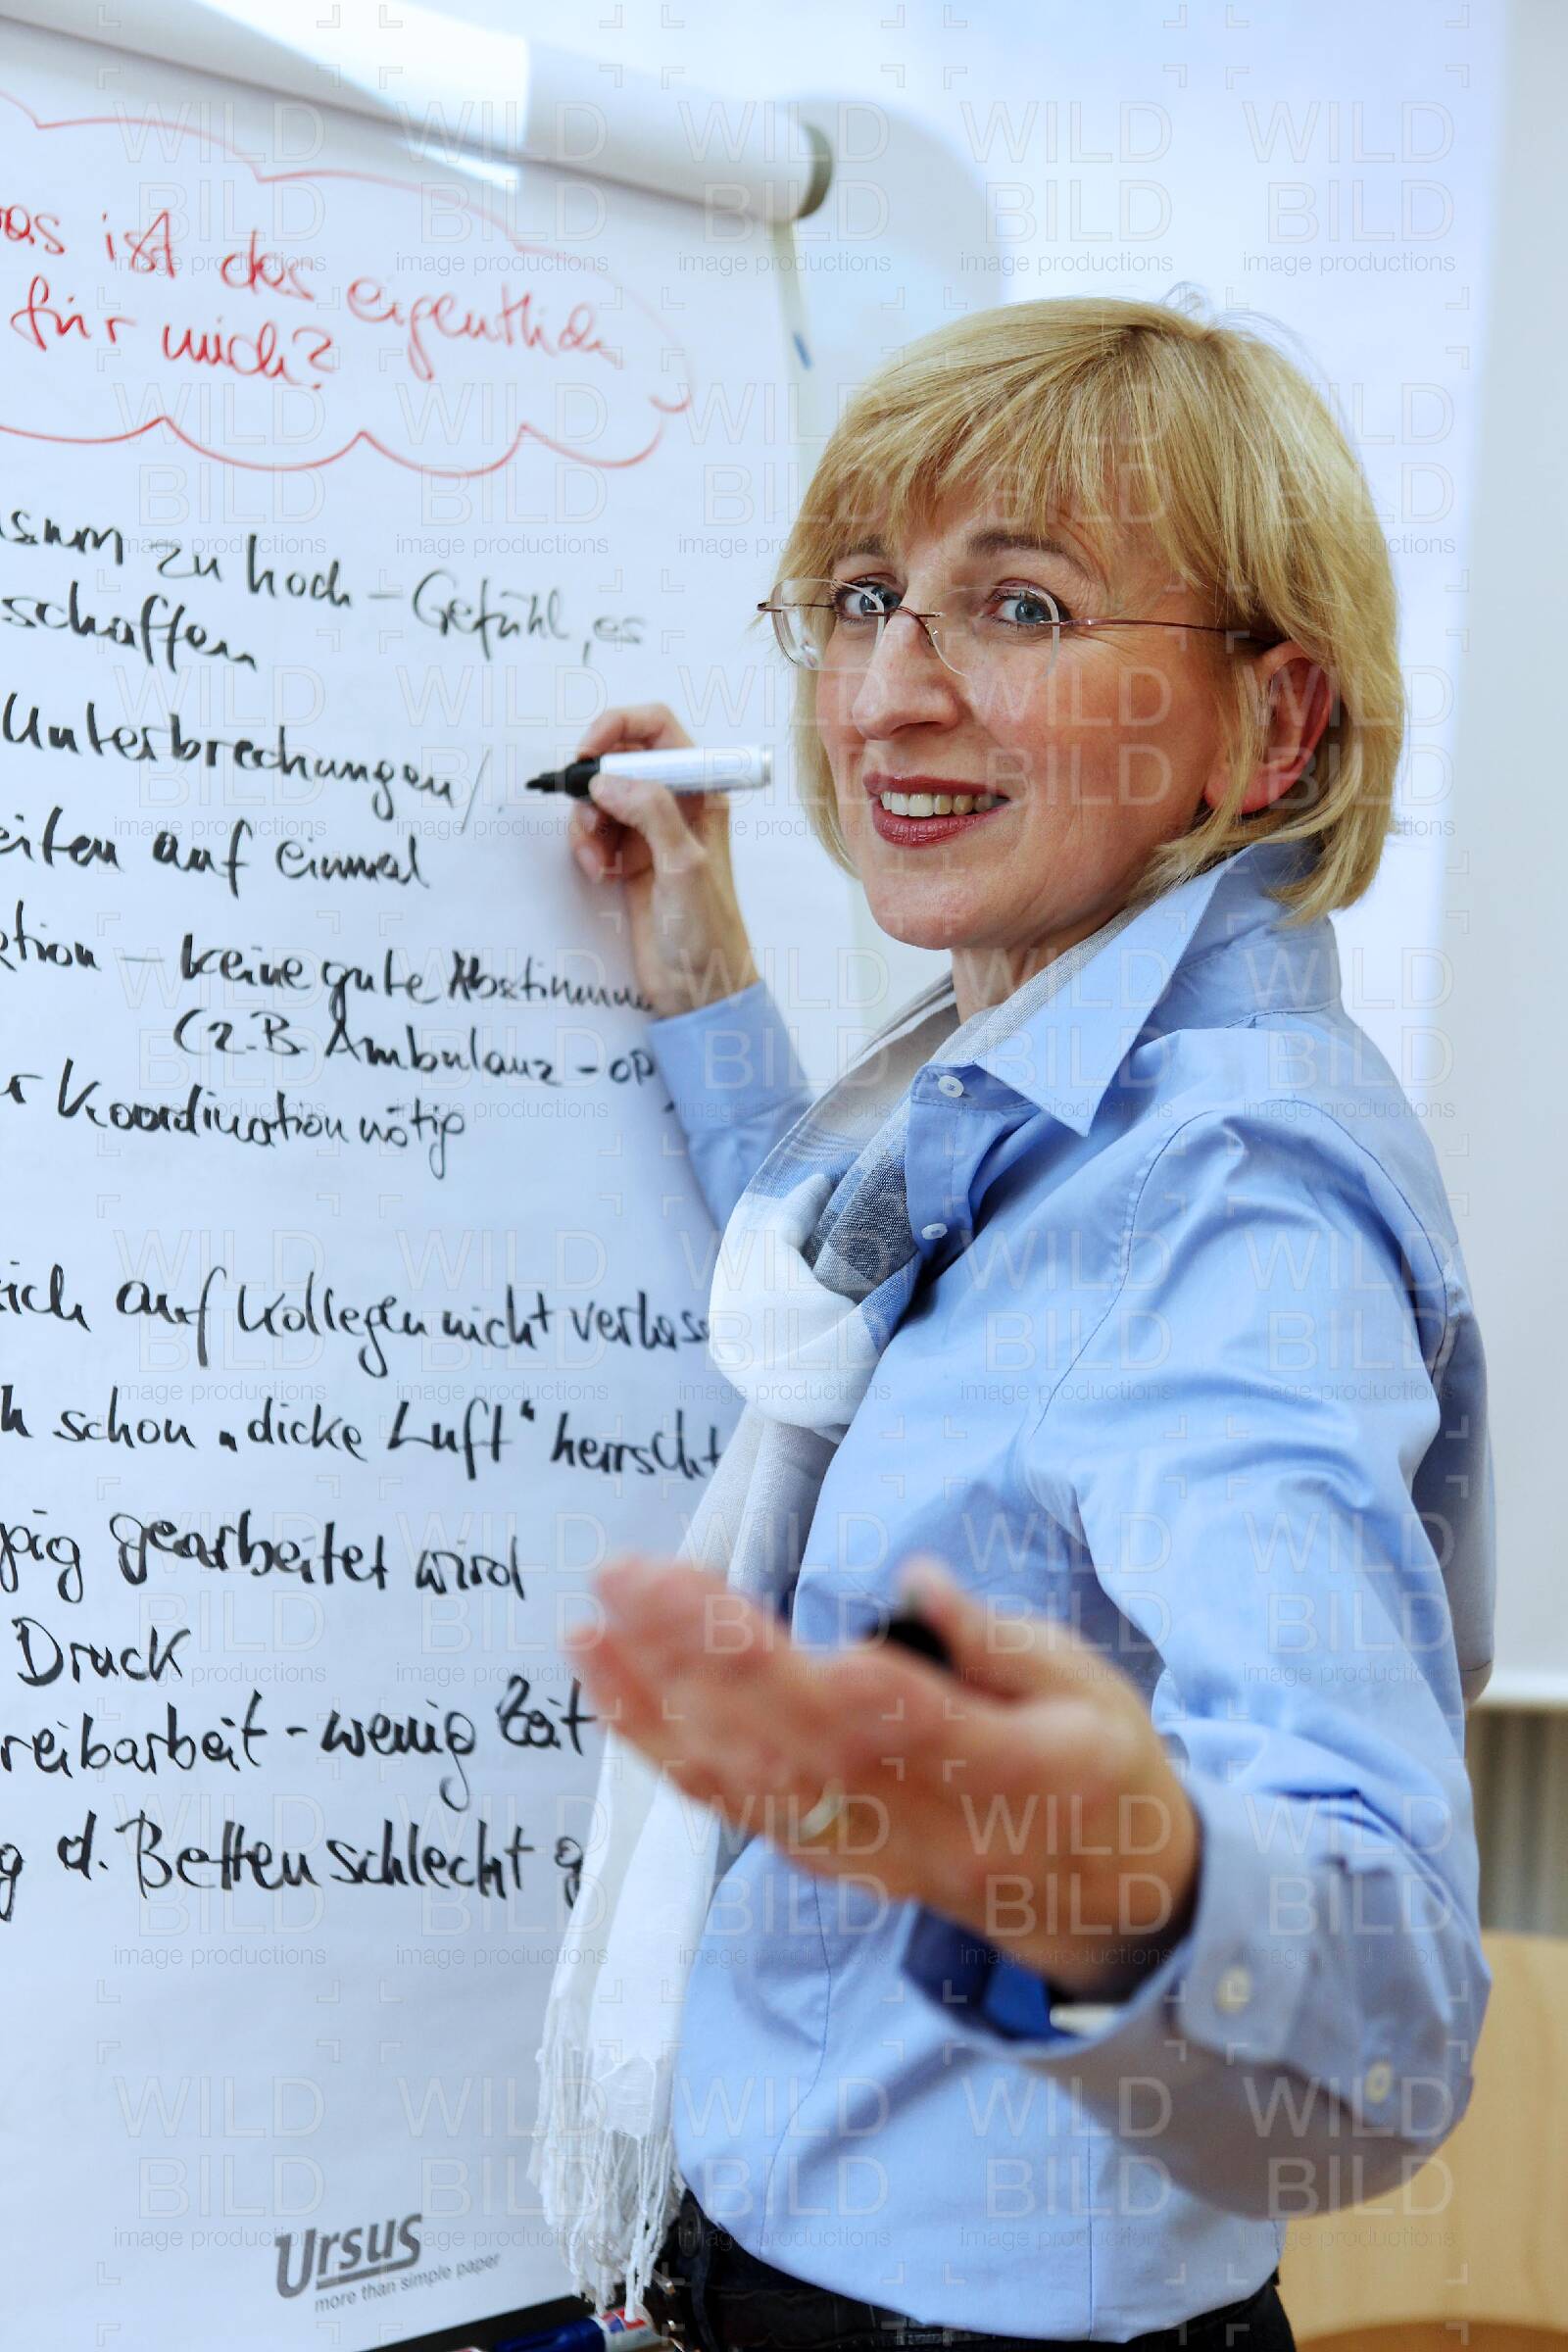 was ist das eigentlich
für mich?
zu hoch - Gefühl, es
schaffen
Unterbrechungen /
auf einmal
keine gute Abstimmu
(z.B. Ambulanz - OP
Koordination nötig
sich auf Kollegen nicht verlass
schon „dicke Luft“ herrscht
gearbeitet wird
Druck
reibarbeit - wenig Zeit
g d. Betten schlecht g
Ursus
more than simple paper
WILD
BILD
image productions